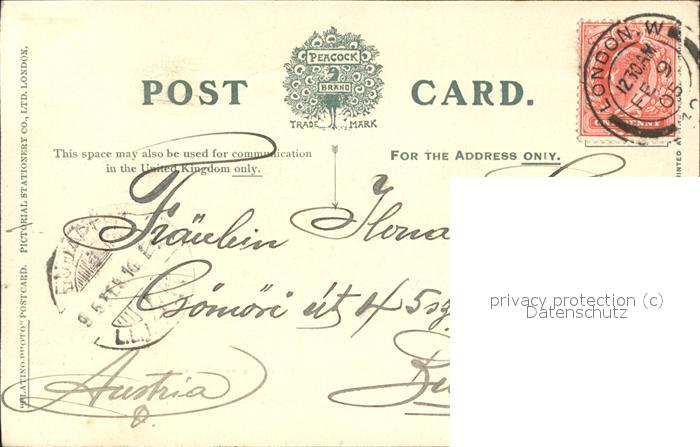 PEACOCK
BRAND
TRADE MARK
POST CARD.
LONDON. W
12.30 AM
FE 9
05
This space may also be used for communication
in the United Kingdom only.
FOR THE ADDRESS ONLY.
Fräulein Ilona
Csömöri út 45
Austria
"PLATINO-PHOTO" POSTCARD. PICTORIAL STATIONERY CO., LTD. LONDON.
PRINTED AT
privacy protection (c)
Datenschutz